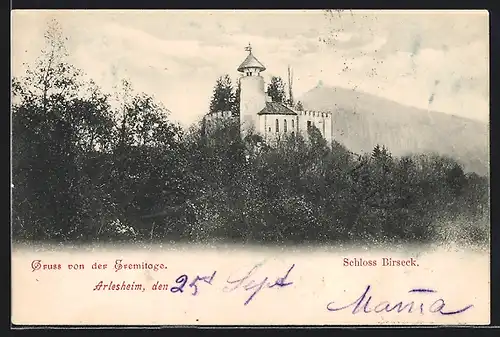 Gruss von der Eremitage.
Schloss Birseck.
Arlesheim, den 25d Sept
Mama